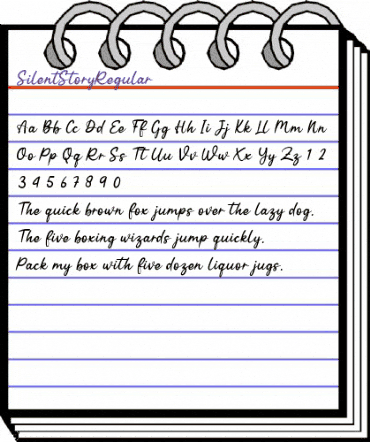 SilentStoryRegular
Aa Bb Cc Dd Ee Ff Gg Hh Ii Jj Kk Ll Mm Nn
Oo Pp Qq Rr Ss Tt Uu Vv Ww Xx Yy Zz 1 2
3 4 5 6 7 8 9 0
The quick brown fox jumps over the lazy dog.
The five boxing wizards jump quickly.
Pack my box with five dozen liquor jugs.